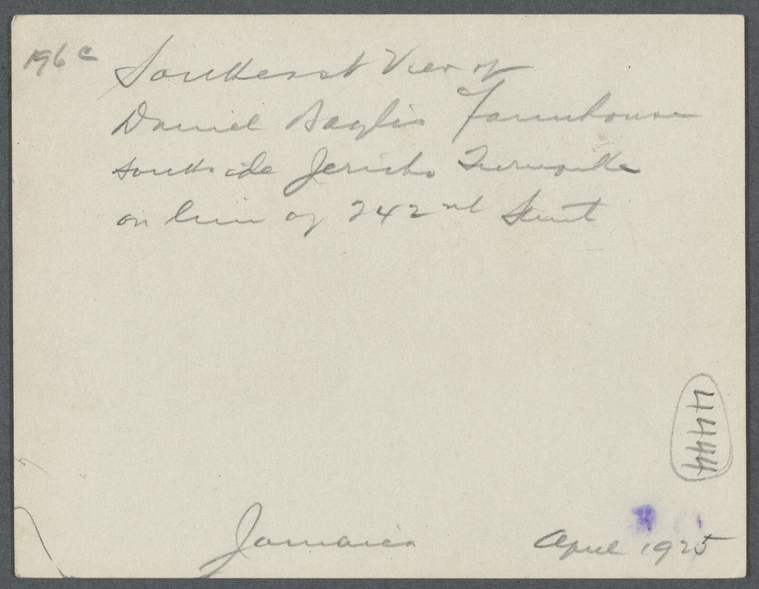 196c
Southeast View of
Daniel Baylis Farmhouse
south side Jericho Turnpike
on line of 242nd Street
4444
Jamaica
April 1925